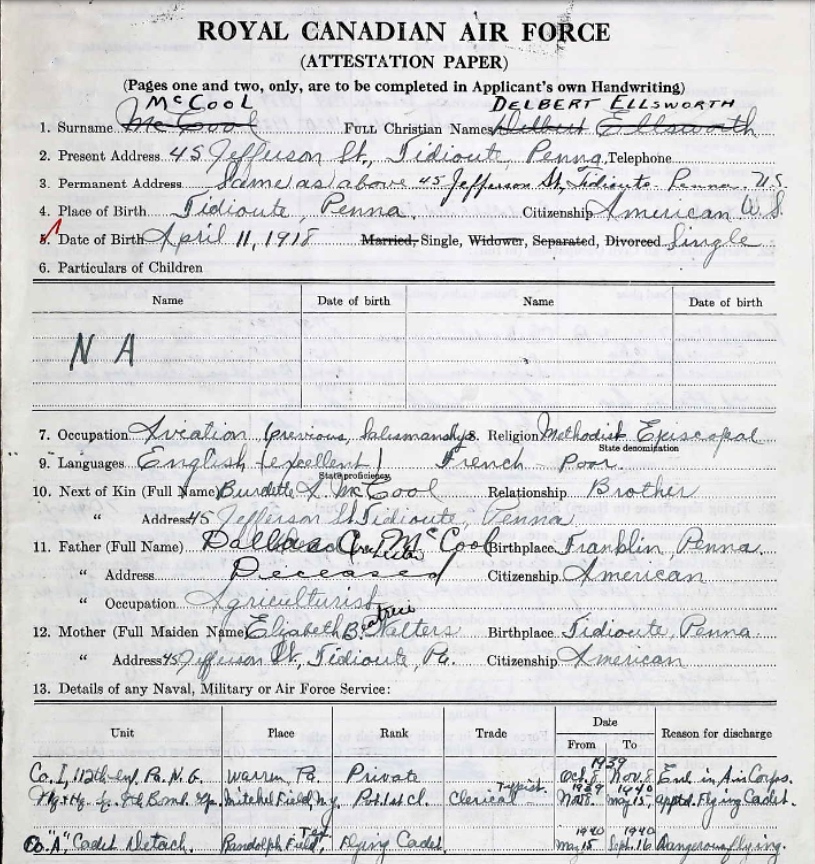 ROYAL CANADIAN AIR FORCE
(ATTESTATION PAPER)
(Pages one and two, only, are to be completed in Applicant's own Handwriting)
McCOOL DELBERT ELLSWORTH
1. Surname McCool FULL Christian Names Delbert Ellsworth
2. Present Address 45 Jefferson St., Tidioute, Penna. Telephone
3. Permanent Address Same as above 45 Jefferson St, Tidioute. Penna. U.S.
4. Place of Birth Tidioute, Penna. Citizenship American U.S.
5. Date of Birth April 11, 1918 Married, Single, Widower, Separated, Divorced Single
6. Particulars of Children
Name Date of birth Name Date of birth
N A
7. Occupation Aviation (previous, Salesmanship 8. Religion Methodist Episcopal
State denomination
9. Languages English (excellent) French - Poor.
State proficiency
10. Next of Kin (Full Name) Burdette L. McCool Relationship Brother
" Address 45 Jefferson St. Tidioute, Penna
11. Father (Full Name) McCool Birthplace Franklin, Penna.
" Address Deceased Citizenship American
" Occupation Agriculturist
12. Mother (Full Maiden Name) Elizabeth Beatrice Walters Birthplace Tidioute, Penna
" Address 45 Jefferson St, Tidioute, Pa. Citizenship American
13. Details of any Naval, Military or Air Force Service:
Unit Place Rank Trade Date Reason for discharge
From To
1939
Co. I, 112th Inf. Pa. N. G. Warren, Pa. Private Oct. 8 Nov. 8 Enl. in Air Corps.
Typist 1939 1940
Hq. & Hq. Sq. 9th Bomb. Gp. Mitchel Field N.Y. Pvt. 1st Cl. Clerical Nov 8. May 15 apptd. Flying Cadet.
Tex. 1940 1940
Co. "A", Cadet Detach. Randolph Field, Flying Cadet. May 15 Sept. 16 Dangerous flying.